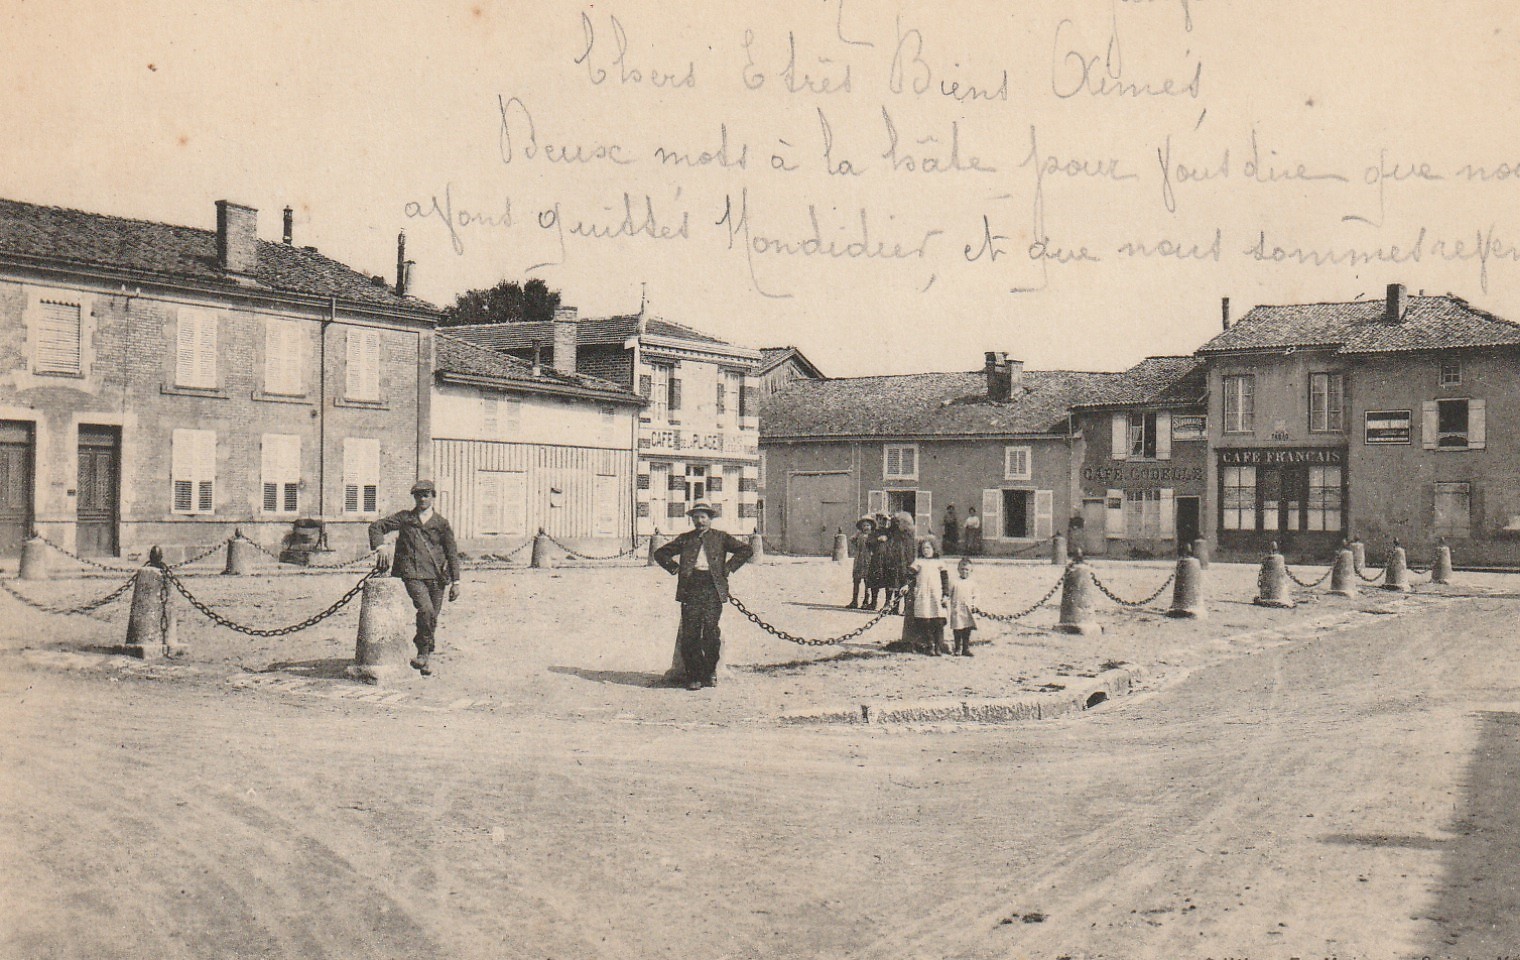 Chers Et très Biens Aimés
Deux mots à la hâte pour vous dire que nou
avons quittés Mondidier, et que nous sommes reven
CAFE DE LA PLACE
CAFE GODELLE
CAFE FRANCAIS
TABAC